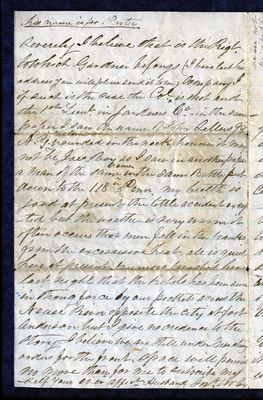 this name is for Porter
Beverely I believe that is the Regt
to which Gardner belongs (I have lost his
address you will please send it to me) Company I
if such is the case the Co is that and
1st Lieut in Gardners Co. in the same
paper I saw the name of John Sellers Jr
wounded in the neck however it may
not be Joes Boy as I saw in another paper
a man of the same name in the same Battle put
down to the 118th Penn my health is
good at present the little accident
but the weather is very warm it
often occurs that men fall in the ranks
from the excessive heat, all is quiet
here at present
last night that the Rebels had been seen
in strong force by our picket across the
Neuse River opposite the city at fort
Anderson but I give no credence to the
Story, I believe we are still under
orders for the front, Space will permit
no more than for me to subscribe my
self your ever affect Husband